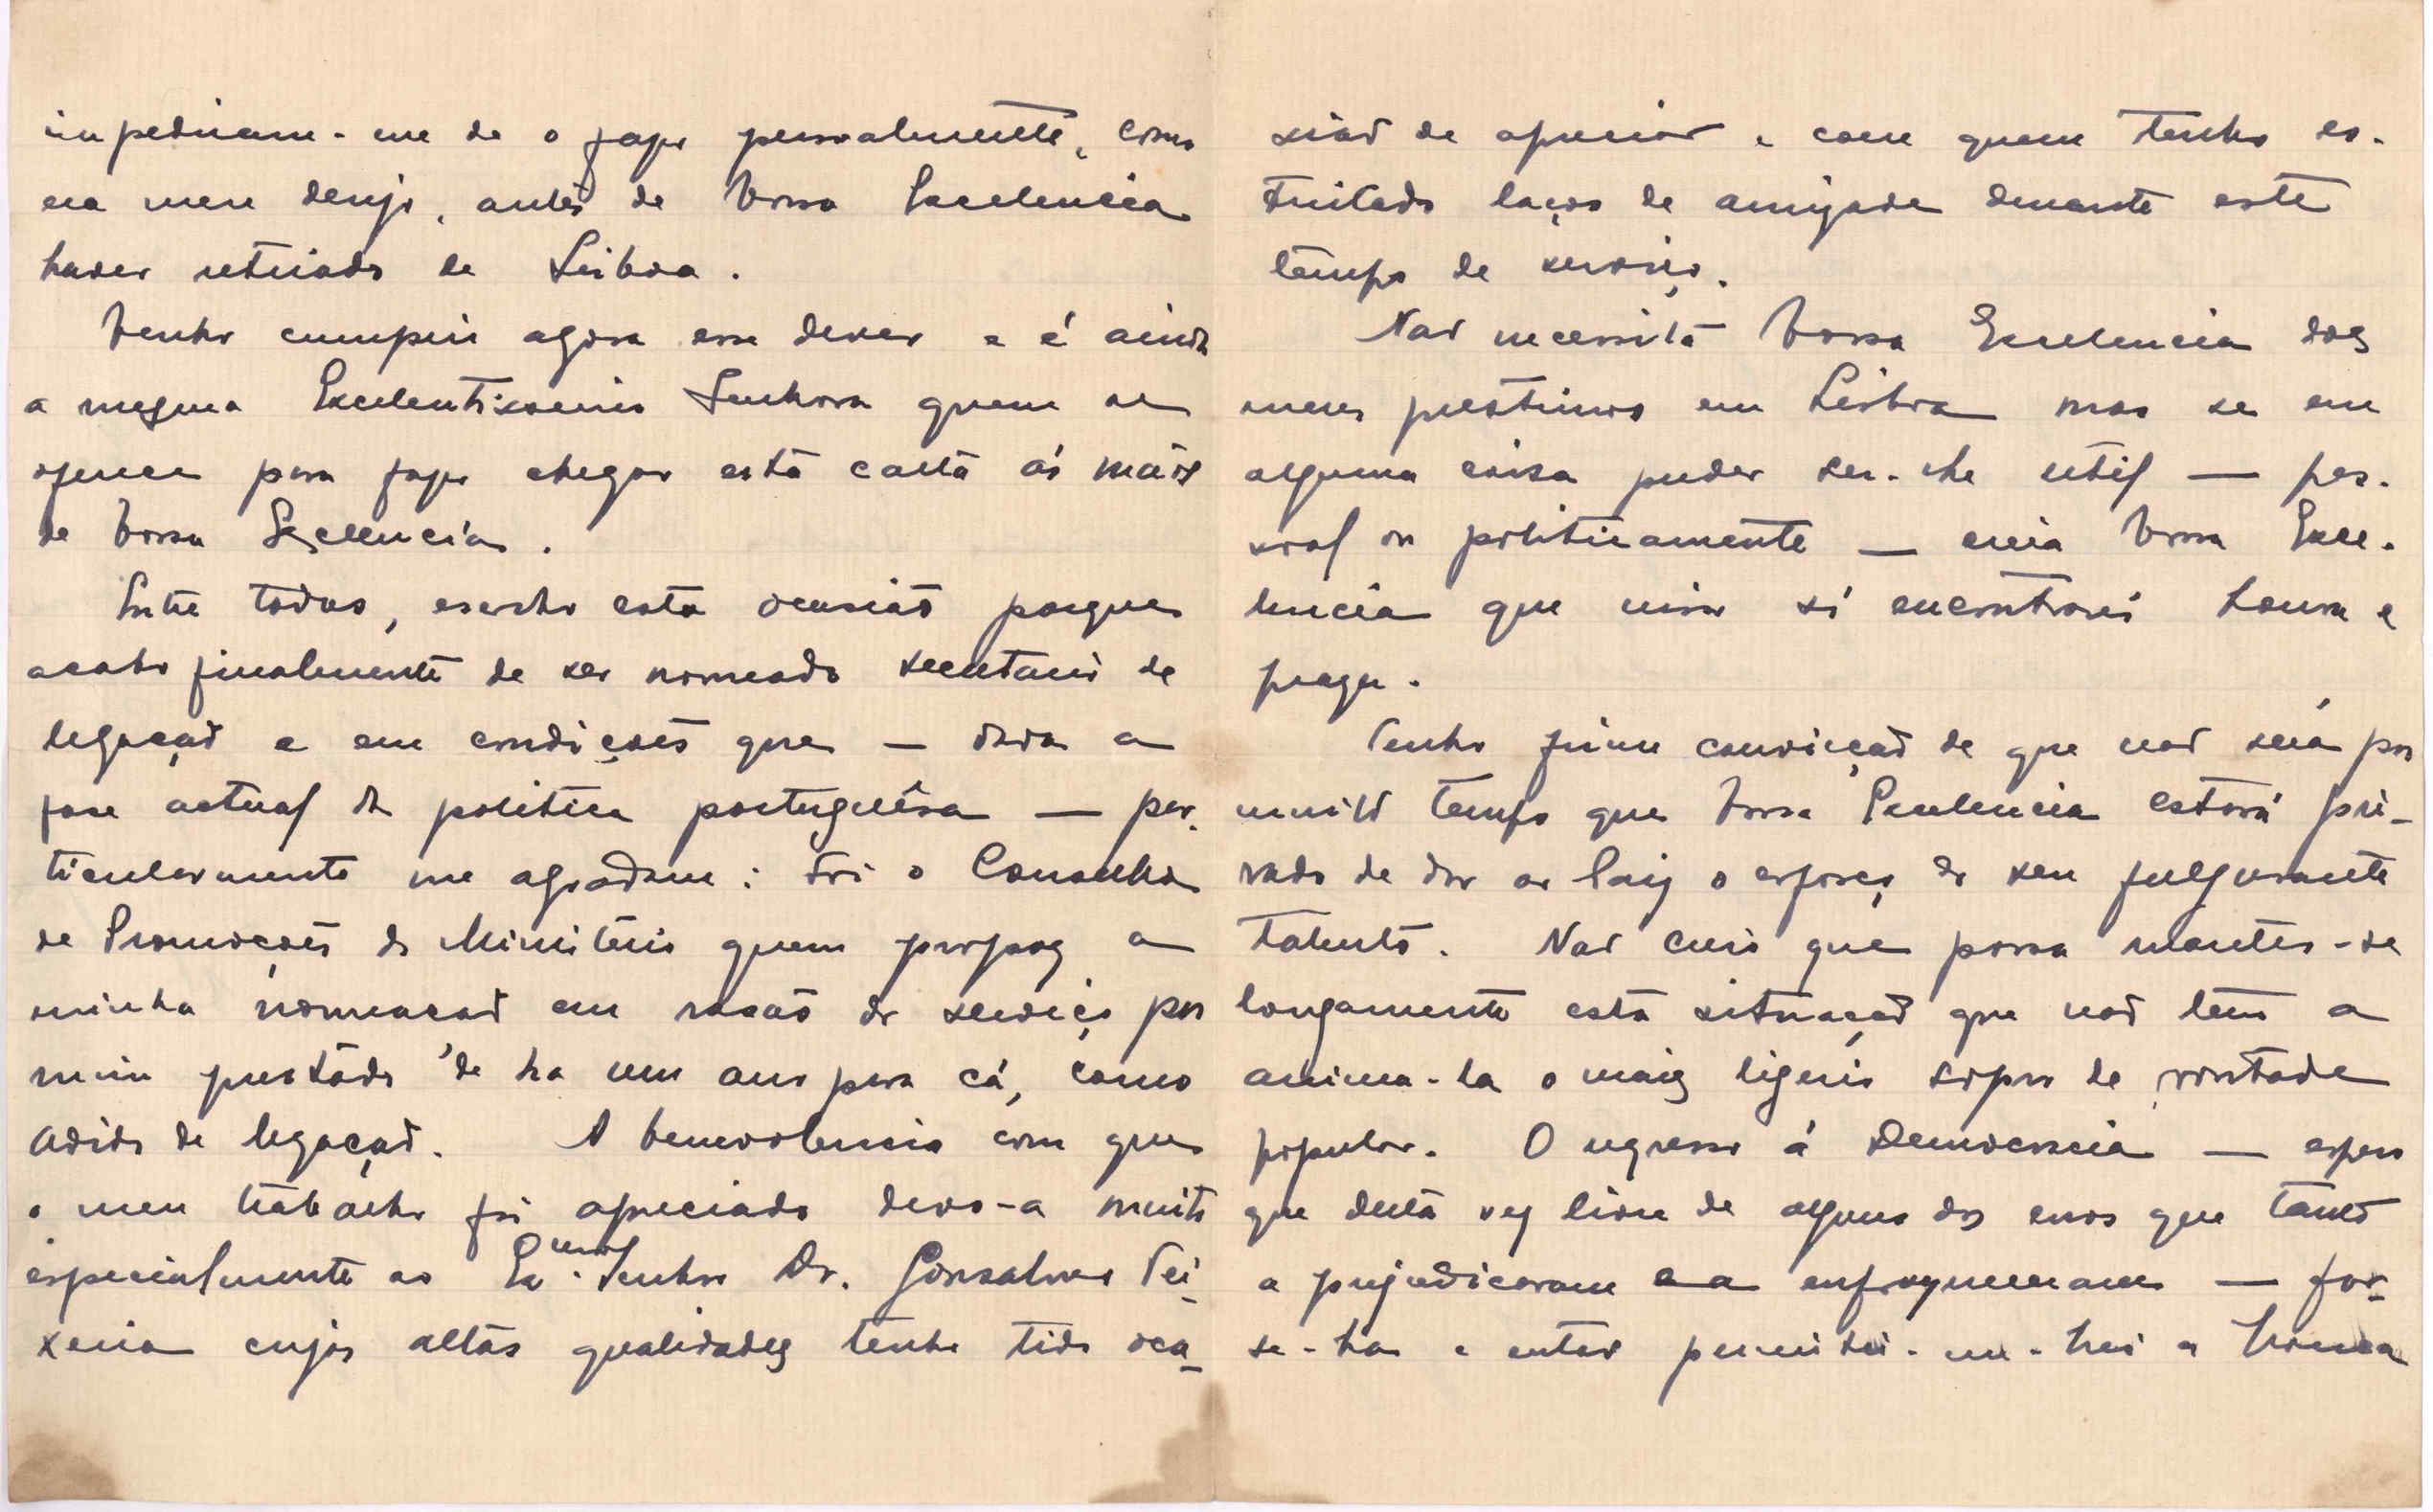 impediram-me de o fazer pessoalmente, como
era meu desejo, antes de Vossa Excelencia
haver retirado de Lisboa.
Venho cumprir agora esse dever e é ainda
a mesma Excelentissima Senhora quem se
oferece para fazer chegar esta carta ás mãos
de Vossa Excelencia.
Entre todas, escolho esta ocasião porque
acabo finalmente de ser nomeado secretario de
legação e em condições que — dada a
fase actual da politica portuguêsa — par-
ticularmente me agradam: foi o Conselho
de Promoções do Ministério quem propoz a
minha nomeação em razão do serviço por
mim prestado de ha um ano para cá, como
adido de legação. A benevolencia com que
o meu trabalho foi apreciado devo-a muito
especialmente ao Ex.mo Senhor Dr. Gonsalves Tei-
xeira cujas altas qualidades tenho tido oca-
sião de apreciar e com quem tenho es-
treitado laços de amizade durante este
tempo de serviço.
Não necessita Vossa Excelencia dos
meus prestimos em Lisboa mas se em
alguma coisa puder ser-lhe util — pes-
soal ou politicamente — creia Vossa Exce-
lencia que nisso só encontrarei honra e
prazer.
Tenho firme convicção de que não será por
muito tempo que Vossa Excelencia estará pri-
vado de dar ao Paiz o esforço do seu fulgurante
talento. Não creio que possa manter-se
longamente esta situação que não tem a
anima-la o mais ligeiro sopro de vontade
popular. O regresso á Democracia — espero
que desta vez livre de alguns dos erros que tanto
a prejudicaram e a enfraqueceram — far-
se-ha e então permitir-me-hei a honra